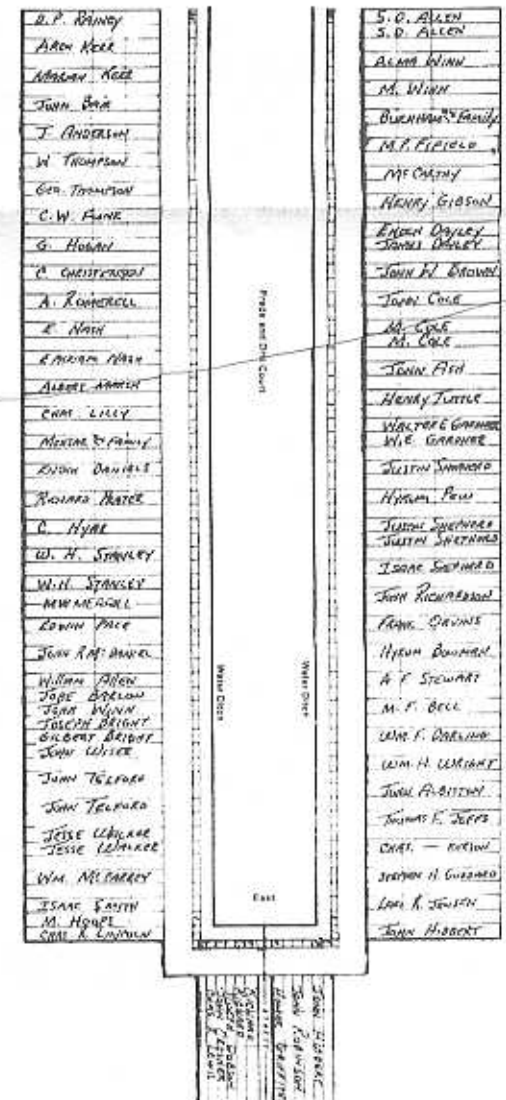 D.P. RAINEY
ARCH KERR
MARIAN KERR
JOHN BAIR
J. ANDERSON
W THOMPSON
GEO. THOMPSON
C.W. FUNK
G. HOGAN
C CHRISTENSON
A. ROMERELL
E. NASH
EPHRIAM NASH
ALBERT MARSH
CHAS. LILLY
& FAMILY
ENOCH DANIELS
RICHARD PRATER
C. HYAR
W. H. STANLEY
W. H. STANLEY
MW MERRILL
EDWIN PACE
JOHN R MCDANIEL
WILLIAM ALLEN
JOBE BARLOW
JOHN WINN
JOSEPH BRIGHT
GILBERT BRIGHT
JOHN WISER
JOHN TELFORD
JOHN TELFORD
JESSE WALKER
JESSE WALKER
WM. MCCARREY
ISAAC SMITH
M. HOOPS
CHAS. R. LINCOLN
Prade and Drill Court
Water Ditch
Water Ditch
East
S. D. ALLEN
S. D. ALLEN
ALMA WINN
M. WINN
BURNHAM'S FAMILY
M.P. FIFIELD
MCCARTHY
HENRY GIBSON
ENOCH DAYLEY
JAMES DAYLEY
JOHN W BROWN
JOHN COLE
M. COLE
M. COLE
JOHN FISH
HENRY TUTTLE
WALTER E GARDNER
W.E. GARDNER
JUSTIN SHEPHERD
HYRUM PEW
JUSTIN SHEPHERD
JUSTIN SHEPHERD
ISAAC SHEPHERD
JOHN RICHARDSON
FRANK
HYRUM BOWMAN
A F STEWART
M. F. BELL
WM F. DARLING
WM. H. WRIGHT
JOHN ALBISTON
THOMAS F. JEFFS
CHAS. —
STEPHEN H. GODDARD
LARS R. JENSEN
JOHN HIBBERT
JOHN HIBBERT
JOHN ROBINSON
GRIFFITH
STREET
RICHARD